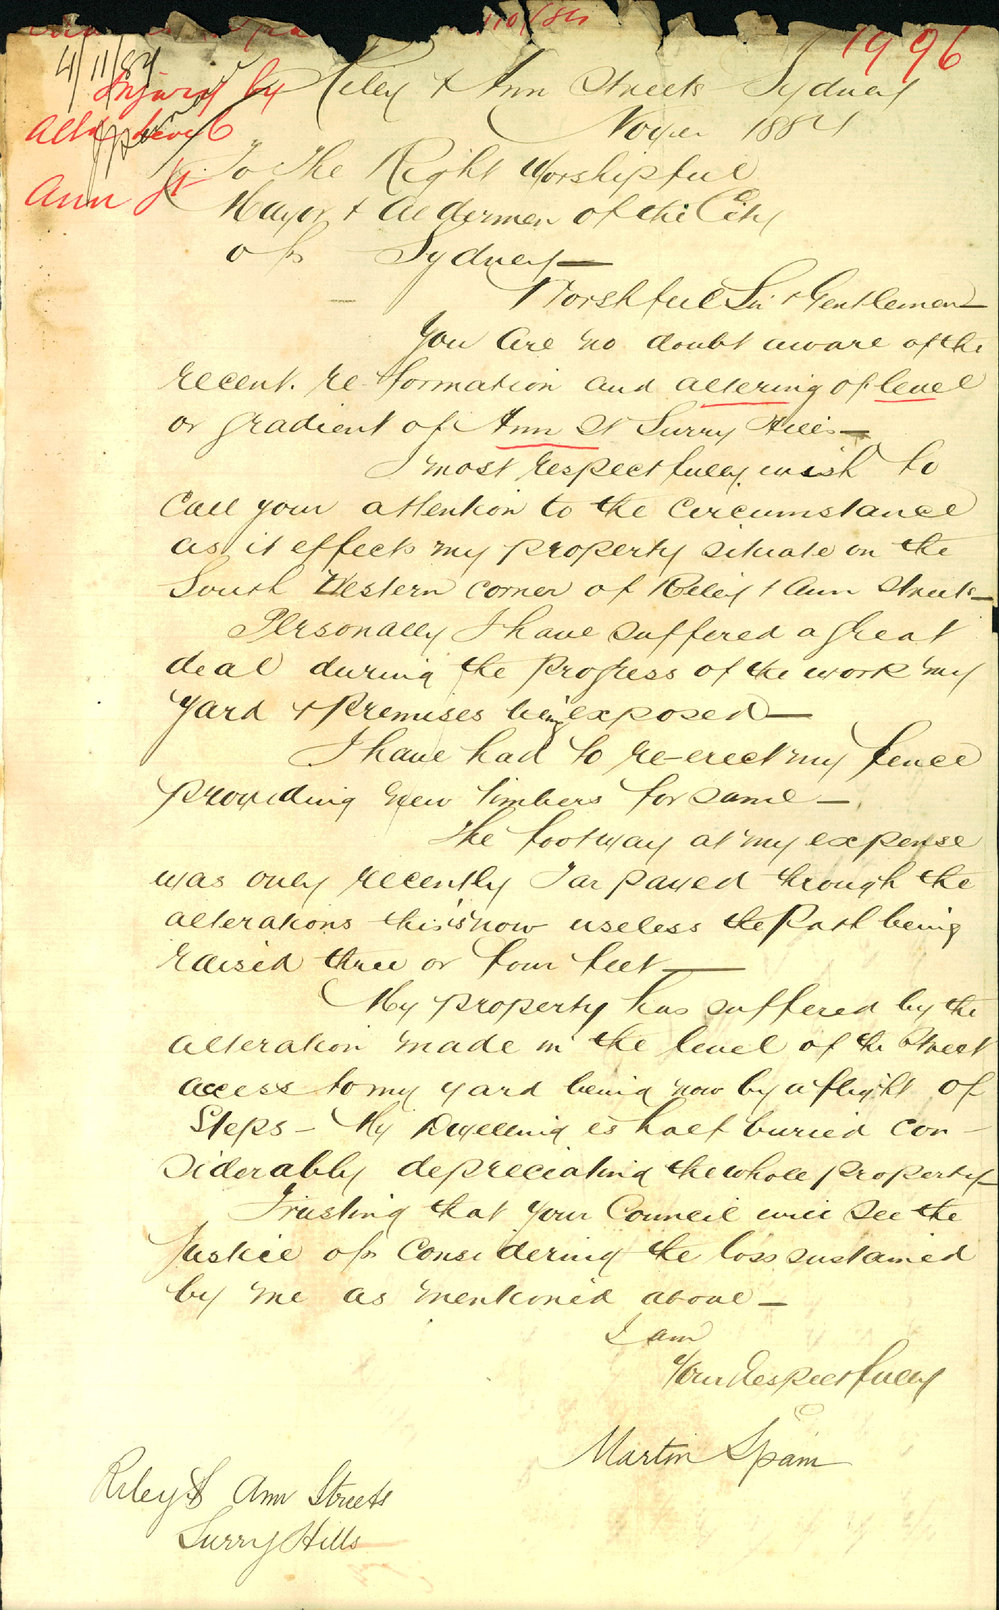 1996
4/11/84
Injury by
Alt level
Ann St
Riley & Ann Streets Sydney
Nover 1884
To The Right Worshipful
Mayor & Aldermen of the City
of Sydney —
Worshful Sir & Gentlemen —
You are no doubt aware of the
recent re-formation and altering of level
or gradient of Ann St Surry Hills —
I most respectfully wish to
call your attention to the circumstance
as it effects my property situate on the
South Western corner of Riley & Ann Streets —
Personally I have suffered a great
deal during the progress of the work my
yard & premises being exposed —
I have had to re-erect my fence
providing new timbers for same —
The footway at my expense
was only recently Tar paved through the
alterations this is now useless the Path being
raised three or four feet —
My property has suffered by the
alteration made in the level of the Street
access to my yard being now by a flight of
Steps – My Dwelling is half buried con-
siderably depreciating the whole property —
Trusting that your Council will see the
Justice of considering the loss sustained
by me as mentioned above —
I am
Your Respectfully
Martin Spain
Riley & Ann Streets
Surry Hills